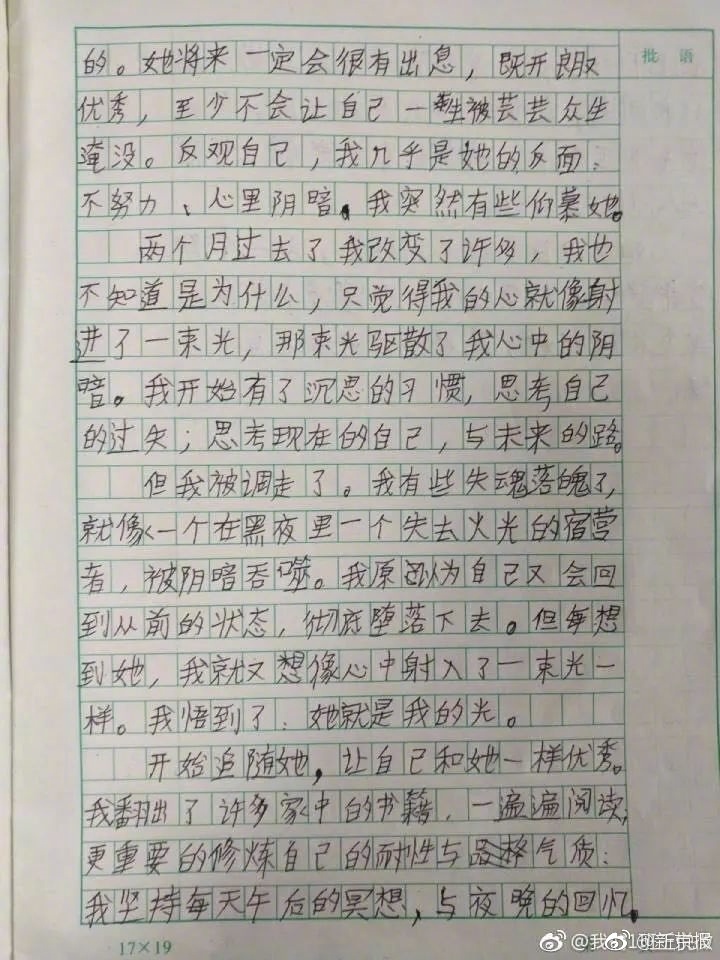 批语
的。她将来一定会很有出息，既开朗又
优秀，至少不会让自己一生被芸芸众生
淹没。反观自己，我几乎是她的反面：
不努力、心里阴暗。我突然有些仰慕她。
两个月过去了我改变了许多，我也
不知道是为什么，只觉得我的心就像射
进了一束光，那束光驱散了我心中的阴
暗。我开始有了沉思的习惯，思考自己
的过失；思考现在的自己，与未来的路。
但我被调走了。我有些失魂落魄了，
就像一个在黑夜里一个失去火光的宿营
者，被阴暗吞噬。我原以为自己又会回
到从前的状态，彻底堕落下去。但每想
到她，我就又想像心中射入了一束光一
样。我悟到了：她就是我的光。
开始追随她，让自己和她一样优秀。
我翻出了许多家中的书籍，一遍遍阅读，
更重要的修炼自己的耐性与气质：
我坚持每天午后的冥想，与夜晚的回忆。
17×19